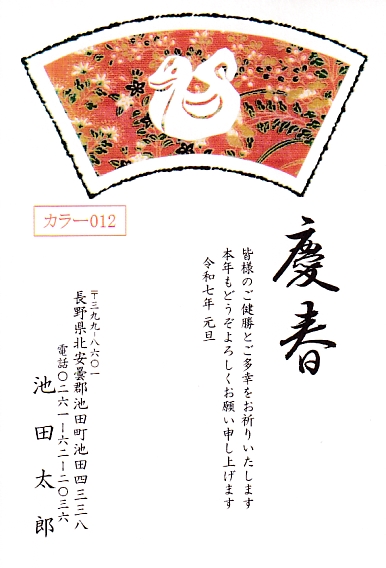 カラー012
慶春
皆様のご健勝とご多幸をお祈りいたします
本年もどうぞよろしくお願い申し上げます
令和七年 元旦
〒三九九-八六〇一
長野県北安曇郡池田町池田四三三八
電話〇二六一-六二-二〇三六
池田太郎